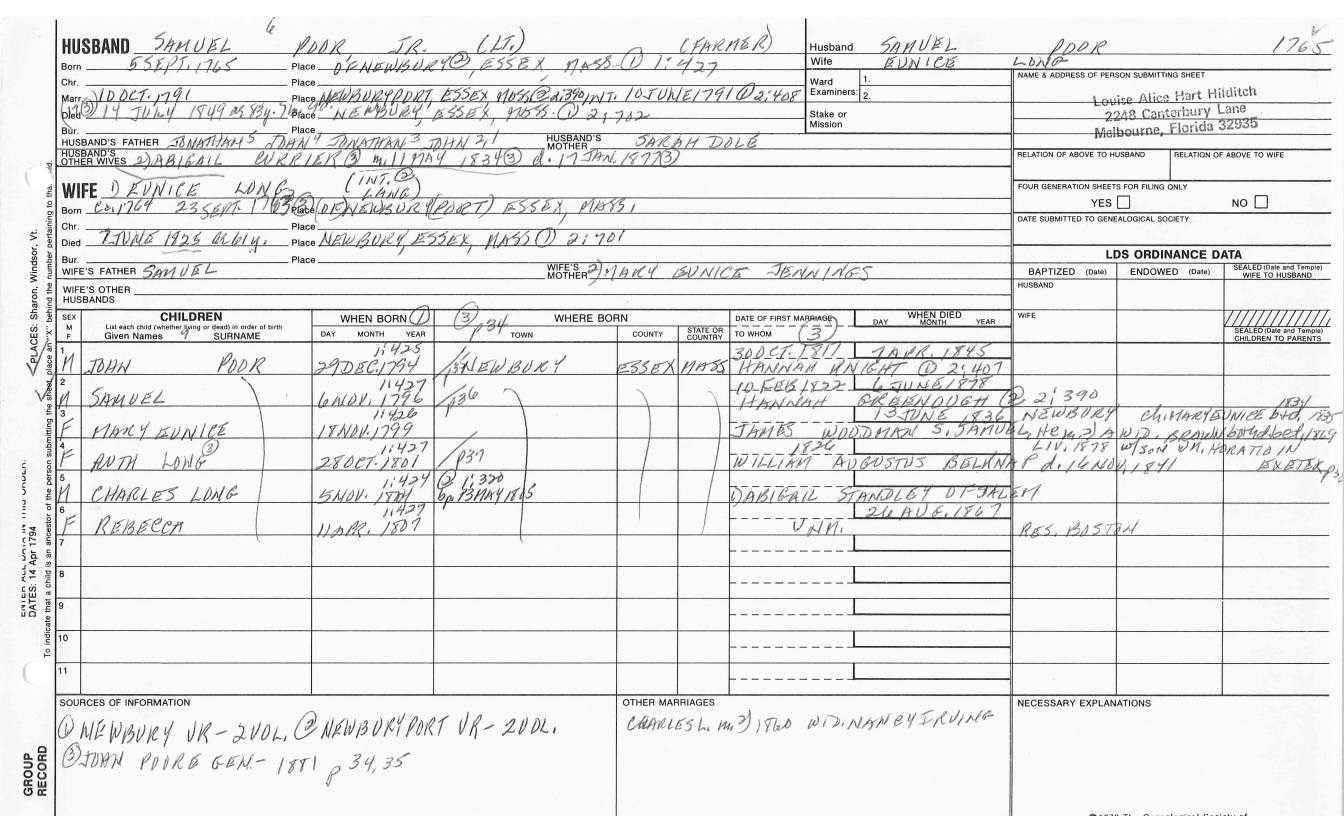 6
HUSBAND SAMUEL POOR JR. (LT.) (FARMER)
Born 5 SEPT. 1765 Place OF NEWBURY ②, ESSEX, MASS. ① 1:427
Chr. Place
Marr. 10 OCT. 1791 Place NEWBURYPORT, ESSEX MASS ② 2:390, INT. 10 JUNE 1791 ① 2:408
Died ③ 14 JULY 1849 Place NEWBURY, ESSEX, MASS. ① 2:702
Bur. Place
HUSBAND'S FATHER JONATHAN 5 JOHN 4 JONATHAN 3 JOHN 2,1 HUSBAND'S MOTHER SARAH DOLE
HUSBAND'S OTHER WIVES 2) ABIGAIL CURRIER ③ m. 11 MAY 1834 ③ d. 17 JAN. 1877 ③
WIFE 1) EUNICE LONG (INT. ② LANG)
Born Ca. 1764 23 SEPT. Place (OF) NEWBURY (PORT) ESSEX, MASS.
Chr. Place
Died 7 JUNE 1825 ae 61y. Place NEWBURY, ESSEX, MASS ① 2:701
Bur. Place
WIFE'S FATHER SAMUEL WIFE'S MOTHER 2) MARY EUNICE JENNINGS
WIFE'S OTHER HUSBANDS
Husband SAMUEL POOR 1765
Wife EUNICE LONG
Ward Examiners: 1.
2.
Stake or Mission
NAME & ADDRESS OF PERSON SUBMITTING SHEET
Louise Alice Hart Hilditch
2248 Canterbury Lane
Melbourne, Florida 32935
RELATION OF ABOVE TO HUSBAND RELATION OF ABOVE TO WIFE
FOUR GENERATION SHEETS FOR FILING ONLY
YES NO
DATE SUBMITTED TO GENEALOGICAL SOCIETY
LDS ORDINANCE DATA
BAPTIZED (Date) ENDOWED (Date) SEALED (Date and Temple) WIFE TO HUSBAND
HUSBAND
WIFE
SEALED (Date and Temple) CHILDREN TO PARENTS
SEX M F CHILDREN WHEN BORN ① ③ p34 WHERE BORN DATE OF FIRST MARRIAGE WHEN DIED
List each child (whether living or dead) in order of birth
Given Names SURNAME DAY MONTH YEAR TOWN COUNTY STATE OR COUNTRY TO WHOM ③ DAY MONTH YEAR
1 1:425 30 OCT. 1817 7 APR. 1845
M JOHN POOR 29 DEC. 1794 NEWBURY ESSEX MASS HANNAH KNIGHT ① 2:407
2 1:427 10 FEB 1822 6 JUNE 1878
M SAMUEL 6 NOV. 1796 p36 HANNAH GREENOUGH ② 2:390
3 1:426 13 JUNE 1836 NEWBURY Ch: MARY EUNICE 1834 1835
F MARY EUNICE 18 NOV. 1799 JAMES WOODMAN S. SAMUEL, He m. 2) A WID. BROWN
4 1:427 1826 LIV. 1878 w/SON WM. HORATIO IN
F RUTH LONG ③ 28 OCT. 1801 p37 WILLIAM AUGUSTUS BELKNAP d. 16 NOV. 1841 EXETER
5 1:424 ② 1:320
M CHARLES LONG 5 NOV. 1804 bp. 13 MAY 1805 1) ABIGAIL STANDLEY OF SALEM
6 1:427 26 AUG. 1867
F REBECCA 11 APR. 1807 UNM. RES. BOSTON
7
8
9
10
11
SOURCES OF INFORMATION
① NEWBURY VR - 2 VOL. ② NEWBURYPORT VR - 2 VOL.
③ JOHN POORE GEN. - 1881 p 34, 35
OTHER MARRIAGES
CHARLES L. m. 2) 1860 WID. NANCY IRVING
NECESSARY EXPLANATIONS
PLACES: Sharon, Windsor, Vt.
DATES: 14 Apr 1794
To indicate that a child is an ancestor of the person submitting the sheet, place an "X" behind the number pertaining to
GROUP RECORD